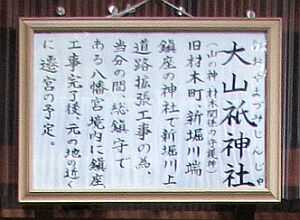 おおやまづみじんじゃ
大山祇神社
(山の神 材木関係の守護神)
旧材木町、新堀川端
鎮座の神社で新堀川上
道路拡張工事の為、
当分の間、総鎮守で
ある八幡宮境内に鎮座
工事完了後、元の地の近く
に遷宮の予定。